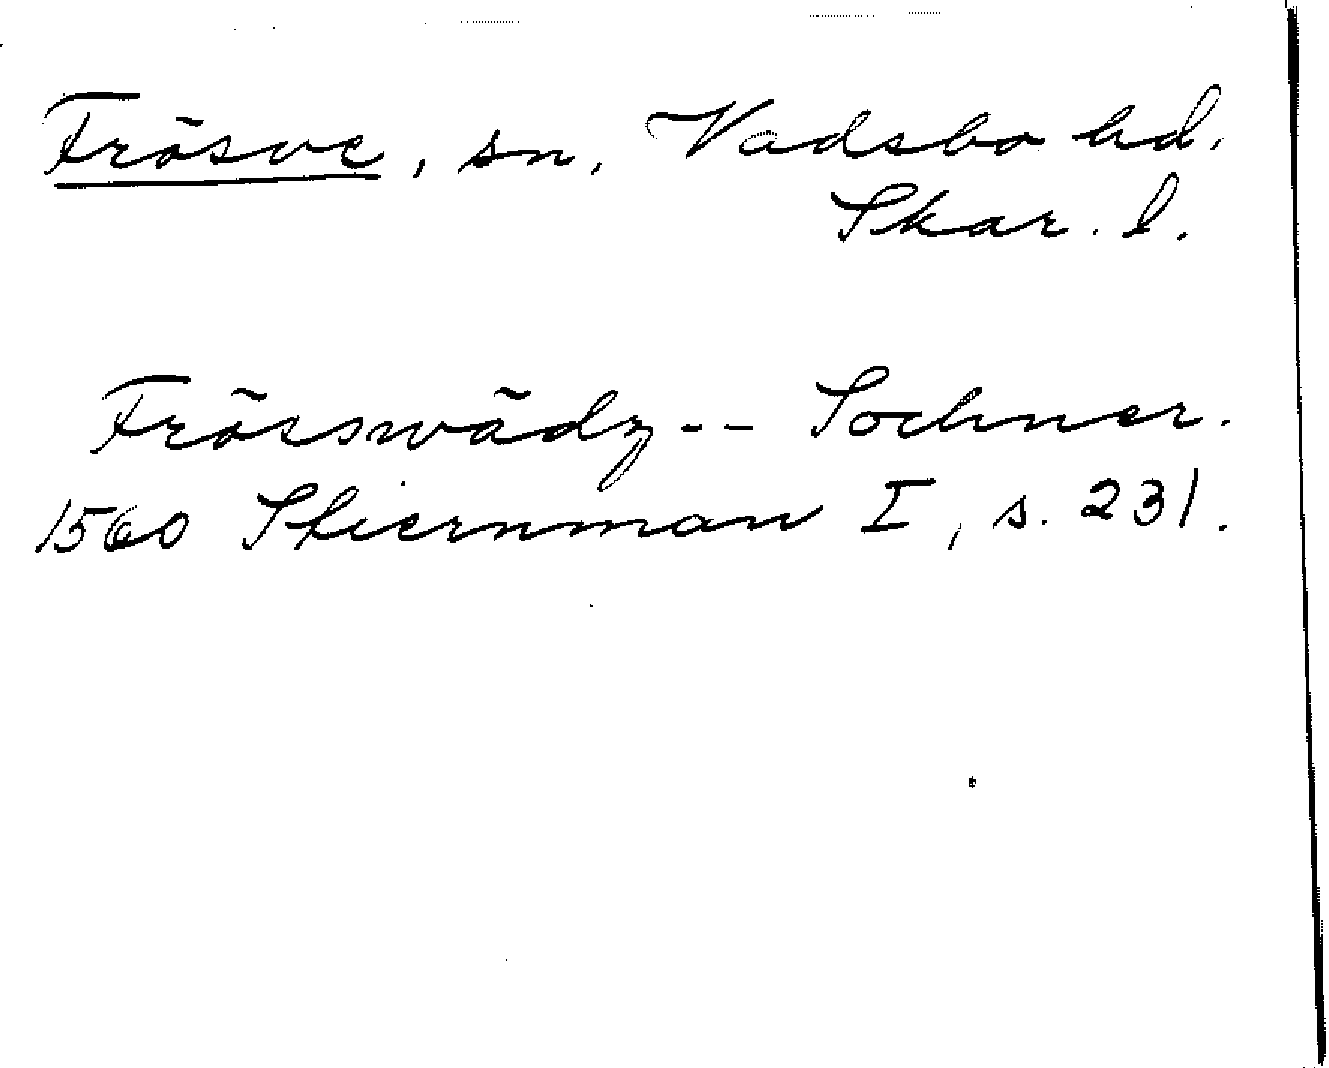 Frösve, sn, Vadsbo hd.
Skar. l.
Fröesswädz -- Sochner.
1560 Stiernman I, s. 231.